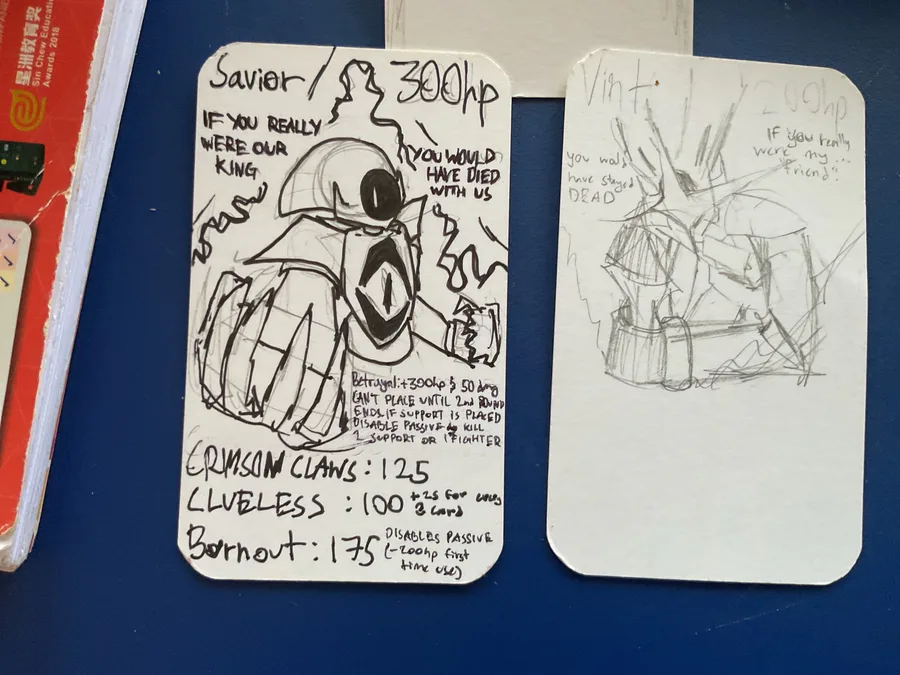 星洲教育奖
Sin Chew Education
Awards 2018
Savior
300hp
IF YOU REALLY
WERE OUR
KING
YOU WOULD
HAVE DIED
WITH US
Betrayal:+300hp & 50 dmg
CAN'T PLACE UNTIL 2nd ROUND
ENDS IF SUPPORT IS PLACED
DISABLE PASSIVE to KILL
2 SUPPORT OR 1 FIGHTER
CRIMSON CLAWS: 125
CLUELESS : 100 +25 for every
card
Bornout: 175 DISABLES PASSIVE
(-200hp first
time use)
200hp
If you really
were my...
"friend".
you would
have stayed
DEAD